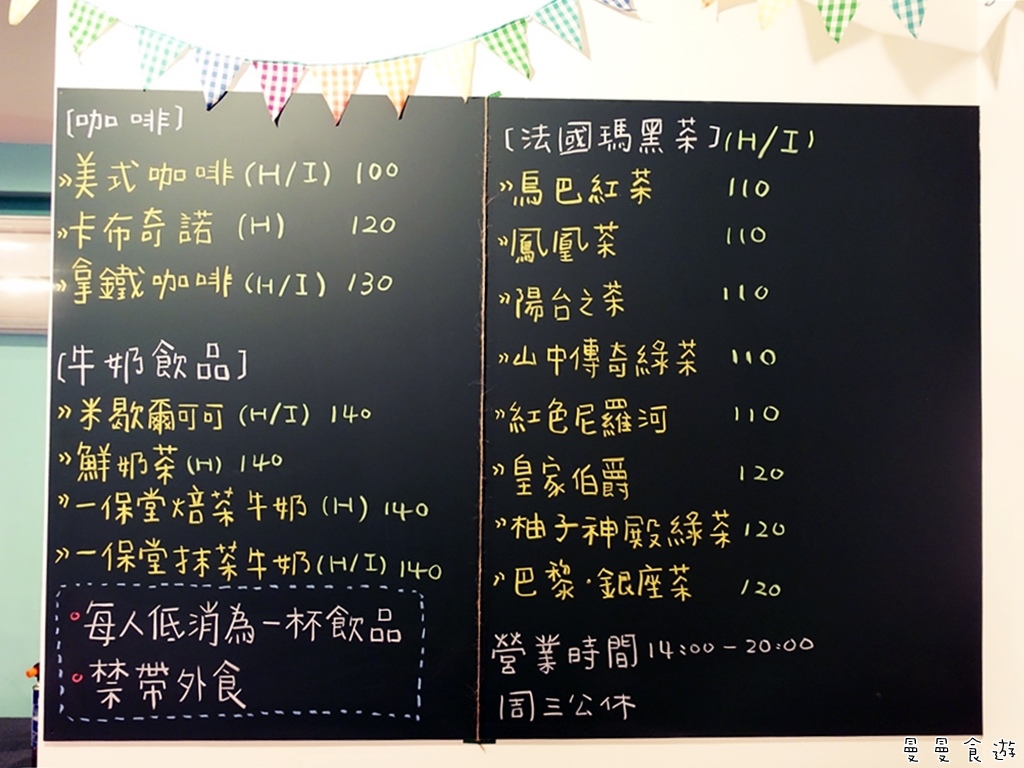 [咖啡]
»美式咖啡(H/I) 100
»卡布奇諾 (H) 120
»拿鐵咖啡(H/I) 130
[牛奶飲品]
»米歇爾可可(H/I) 140
»鮮奶茶(H) 140
»一保堂焙茶牛奶(H) 140
»一保堂抹茶牛奶(H/I) 140
•每人低消為一杯飲品
•禁帶外食
[法國瑪黑茶](H/I)
»烏巴紅茶 110
»鳳凰茶 110
»陽台之茶 110
»山中傳奇綠茶 110
»紅色尼羅河 110
»皇家伯爵 120
»柚子神殿綠茶 120
»巴黎·銀座茶 120
營業時間14:00-20:00
周三公休
曼曼食遊